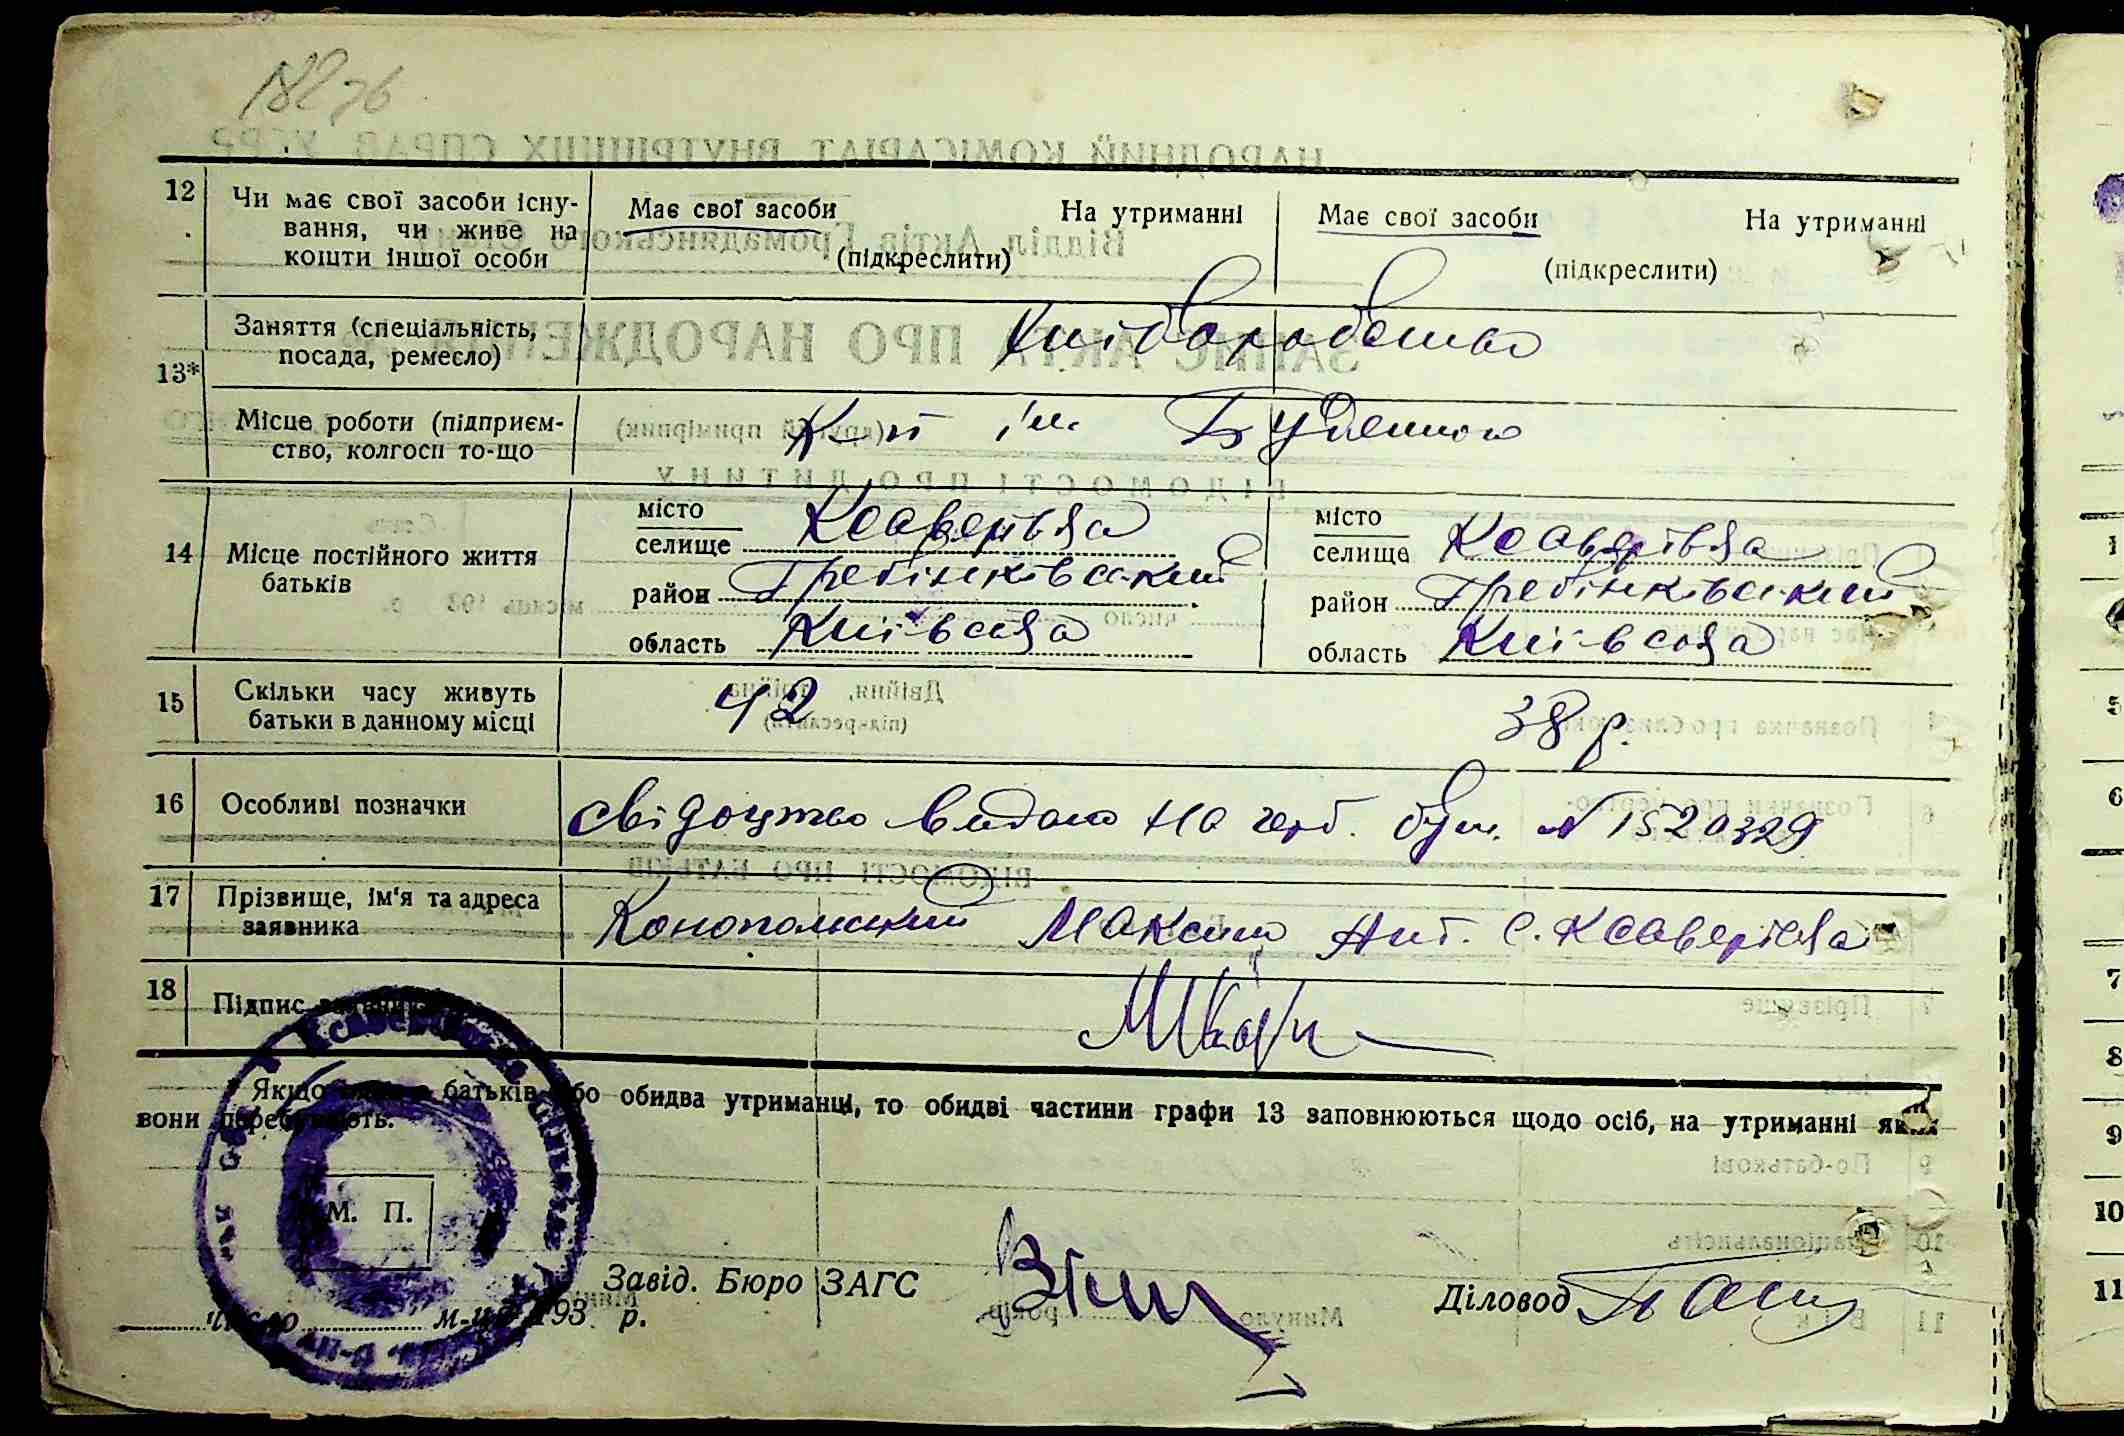 12 Чи має свої засоби існу-
вання, чи живе на
кошти іншої особи
Має свої засоби На утриманні
(підкреслити)
Має свої засоби На утриманні
(підкреслити)
13*
Заняття (спеціальність,
посада, ремесло)
Хліборобство
Місце роботи (підприєм-
ство, колгосп то-що
К-п ім Буденного
14 Місце постійного життя
батьків
місто
селище Ксаверівка
район Гребінківський
область Київська
місто
селище Ксаверівка
район Гребінківський
область Київська
15 Скільки часу живуть
батьки в данному місці
42
38 р.
16 Особливі позначки
свідоцтво видано на герб. бум. № 1520329
17 Прізвище, ім'я та адреса
заявника
Конопольский Максим Ант. с. Ксаверівка
18 Підпис
Якщо батьків або обидва утриманці, то обидві частини графи 13 заповнюються щодо осіб, на утриманні яких
вони перебувають.
М. П.
Завід. Бюро ЗАГС
Діловод
число м-ця 193 р.